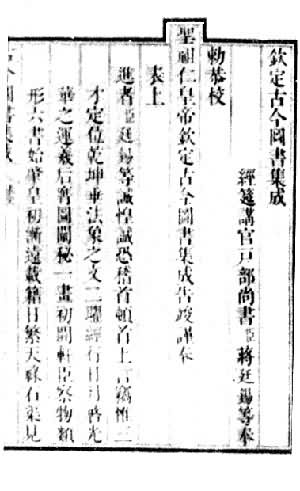 欽定古今圖書集成
經筵講官戶部尚書臣蔣廷錫等奉
勅恭校
聖祖仁皇帝欽定古今圖書集成告竣謹奉
表上
進者臣廷錫等誠惶誠恐稽首頓首上言竊惟三
才定位乾坤垂法象之文二曜經行日月啓光
華之運羲后龍圖闡秘一畫初開軒臣察物類
形六書始肇皇初漸遠載籍日繁天祿石渠見
古今圖書集成